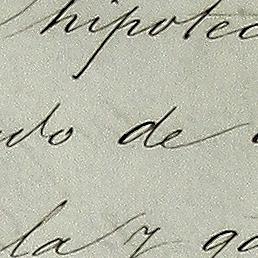 hipotec
do de
la y go